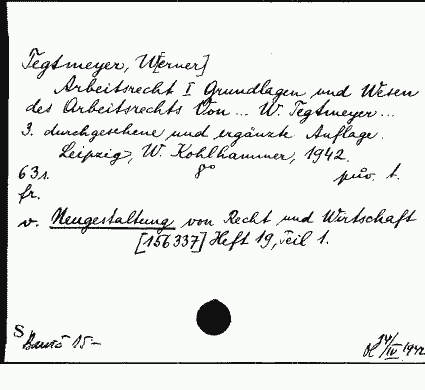 Tegtmeyer, W[erner]
Arbeitsrecht I Grundlagen und Wesen
des Arbeitsrechts Von ... W. Tegtmeyer ...
3. durchgesehene und ergänzte Auflage.
Leipzig, W. Kohlhammer, 1942.
63 s. 8° püv. t.
fr.
v. Neugestaltung von Recht und Wirtschaft
[156337] Heft 19, Teil 1.
S
15-
14/IV 1942